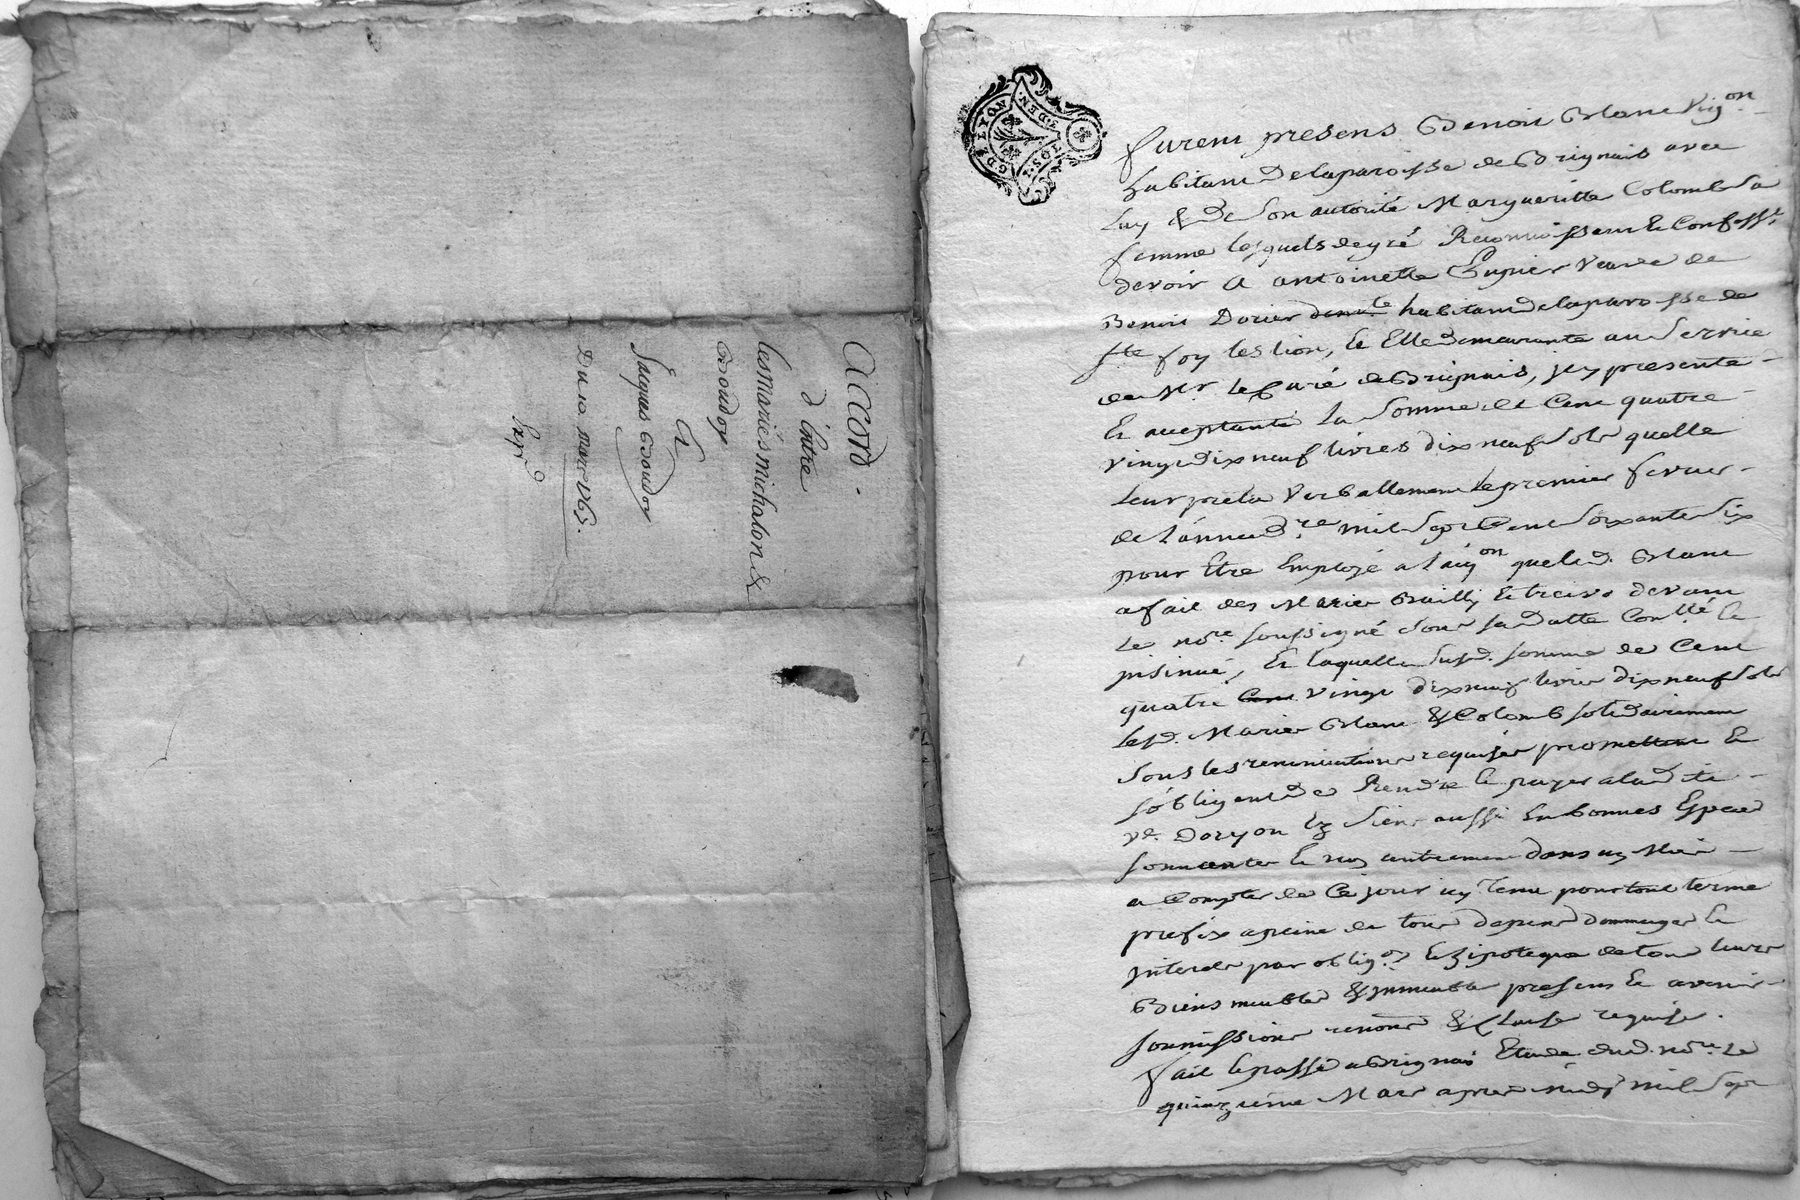 Accord
d'Entre
les mariés michalon &
Goudon
&
Jacques Goudon
Du 10 mars 1763.
Exp.d
G DE LYON
2. DEN.
2 SOLS
furent presens Benoit Blanc Vig.on
habitant de la paroisse de Brignais avec
Luy & de son autorité Margueritte Colomb Sa
femme lesquels de gré Reconnoissent & Confess.t
devoir a antoinette veuve de
Benoit Dorier habitant de la paroisse de
Ste foy les lion, & Elle demeurante au Service
de Mr. le Curé de Brignais, jcy presente
& aceptante La Somme de Cent quatre
vingt dix neuf livres dix neuf Sols quelle
Leur preta Verballement Le premier fevrier
de L'année d.re mil Sept Cent Soixante Six
pour Etre Employé a l'aq.on que led. Blanc
a fait des Mariés Bailly & reçus devant
Le no.re soussigné Sous sa datte Con.llé &
jnsinué, & laquelle susd. somme de Cent
quatre Cent vingt dix neuf livres dix neuf Sols
lesd. Mariés Blanc & Colomb solidairement
Sous les renunciations requises promettent &
s'obligent de Rendre & payer a ladite
v.e & Siens aussi En bonnes Espece
sonnantes & non autrement dans un
a Compter de Ce jour jcy Tenu pour tout terme
prefix a peine de tous depens dommages &
jnterets par oblig.on & hipoteque de tous leurs
Biens meubles & jmmeubles presens & avenir
soumissions renon.s & Clauses requises.
fait & passé a Brignais Etude dud. no.re Le
quinzieme Mars apres midy mil Sept